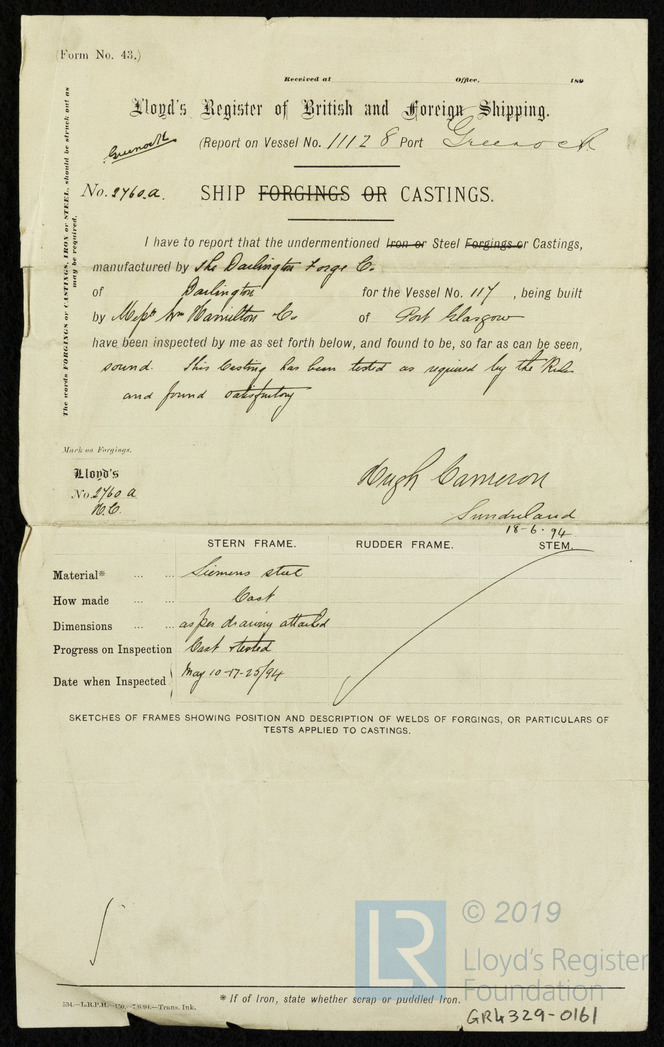 (Form No. 43.)
Received at Office, 189
Lloyd's Register of British and Foreign Shipping.
Greenock
(Report on Vessel No. 11128 Port Greenock
No. 2760.a. SHIP FORGINGS OR CASTINGS.
The words FORGINGS or CASTINGS, IRON or STEEL, should be struck out as
may be required.
I have to report that the undermentioned Iron or Steel Forgings or Castings,
manufactured by The Darlington Forge Co.
of Darlington for the Vessel No. 117 , being built
by Messrs Wm Hamilton & Co. of Port Glasgow
have been inspected by me as set forth below, and found to be, so far as can be seen,
sound. This Casting has been tested as required by the Rules
and found satisfactory
Mark on Forgings.
Lloyd's
No. 2760 a
H.C.
Hugh Cameron
Sunderland
18-6-94
STERN FRAME. RUDDER FRAME. STEM.
Material* ... ... Siemens steel
How made ... ... Cast
Dimensions ... ... as per drawing attached
Progress on Inspection Cast & tested
Date when Inspected May 10-17-25/94
SKETCHES OF FRAMES SHOWING POSITION AND DESCRIPTION OF WELDS OF FORGINGS, OR PARTICULARS OF
TESTS APPLIED TO CASTINGS.
LR
© 2019
Lloyd's Register
Foundation
* If of Iron, state whether scrap or puddled Iron.
534.—L.R.P.H.—150.—7.6.94.—Trans. Ink.
GR4329-0161